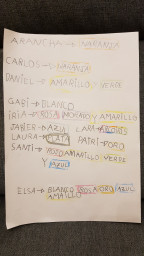 ARANCHA→NARANJA
CARLOS→NARANJA
DANIEL→AMARILLO VERDE
GABI→BLANCO
IRIA→ROSA MORADO Y AMARILLO
JAVIER→AZUL LARA→
LAURA→PLATA PATRI→ORO
SANTI→ROJO AMARILLO VERDE
Y AZUL
ELSA→BLANCO ROSA ORO AZUL
AMARILLO